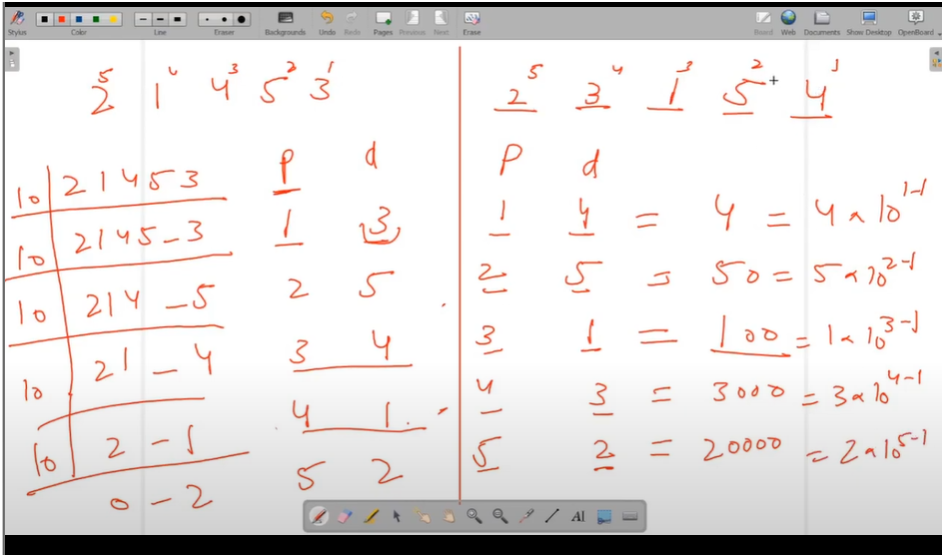 Stylus Color Line Eraser Backgrounds Undo Redo Pages Previous Next Erase Board Web Documents Show Desktop OpenBoard
2⁵ 1⁴ 4³ 5² 3¹
10 | 21453
10 | 2145 - 3
10 | 214 - 5
10 | 21 - 4
10 | 2 - 1
0 - 2
P d
1 3
2 5
3 4
4 1
5 2
2⁵ 3⁴ 1³ 5² 4¹
P d
1 4 = 4 = 4 × 10¹⁻¹
2 5 = 50 = 5 × 10²⁻¹
3 1 = 100 = 1 × 10³⁻¹
4 3 = 3000 = 3 × 10⁴⁻¹
5 2 = 20000 = 2 × 10⁵⁻¹
AI